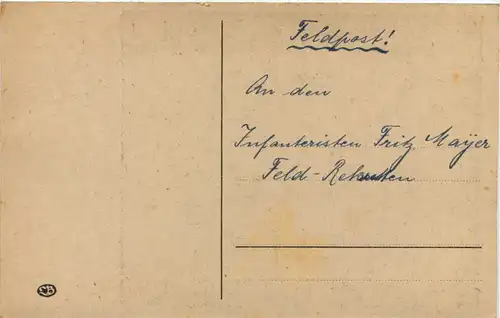 Feldpost!
An den
Infanteristen Fritz Mayer
Feld-Rekruten